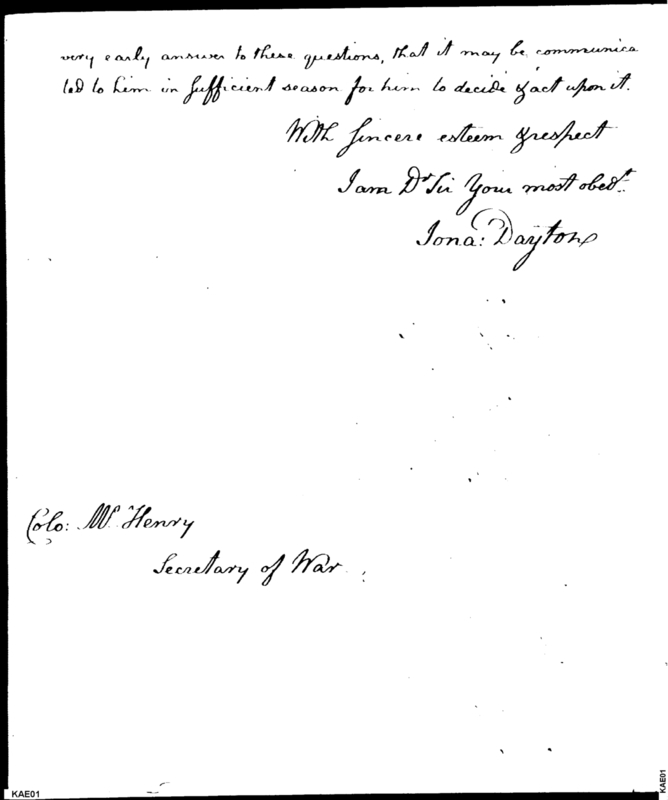 very early answer to these questions, that it may be communica
ted to him in sufficient season for him to decide & act upon it.
With sincere esteem & respect
I am Dr Sir Your most obedt.
Jona: Dayton
Colo: McHenry
Secretary of War
KAE01
KAE01